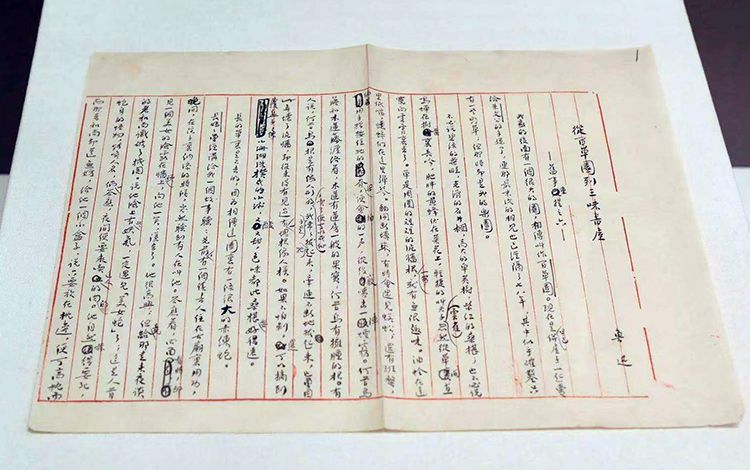 1
從百草園到三味書屋
——舊事重提之六——
魯迅
我家的後面有一個很大的園,相傳叫作百草園。現在是早已併屋子一起賣
給朱文公的子孫了,連那最末次的相見也已經隔了七八年,其中似乎確鑿只
有一些野草;但那時卻是我的樂園。
不必說碧綠的菜畦,光滑的石井欄,高大的皂莢樹,紫紅的桑椹;也不必說
鳴蟬在樹葉裏長吟,肥胖的黃蜂伏在菜花上,輕捷的叫天子(雲雀)忽然從草間直
竄向雲霄裏去了。單是周圍的短短的泥牆根一帶,就有無限趣味。油蛉在這
裏低唱,蟋蟀們在這裏彈琴。翻開斷磚來,有時會遇見蜈蚣;還有斑蝥,
倘若用手指按住牠的脊梁,便會拍的一聲,從後竅噴出一陣煙霧。何首烏
藤和木蓮藤纏絡着,木蓮有蓮房一般的果實,何首烏有擁腫的根。有
人說,何首烏根是有像人形的,吃了便可以成仙,我於是常常拔牠起來,牽連不斷地拔起來,也曾因
此弄壞了泥牆,卻從來沒有見過有一塊根像人樣。如果不怕刺,還可以摘到
覆盆子,像小珊瑚珠攢成的小球,又酸又甜,色味都比桑椹好得遠。
長的草裏是不去的,因為相傳這園裏有一條很大的赤練蛇。
長媽媽曾經講給我一個故事聽:先前,有一個讀書人住在古廟裏用功,
晚間,在院子裏納涼的時候,突然聽到有人在叫他。答應着,四面看時,卻
見一個美女的臉露在牆頭上,向他一笑,隱去了。他很高興;但竟給那走來夜談
的老和尚識破了機關。說他臉上有些妖氣,一定遇見「美女蛇」了;這是人首
蛇身的怪物,能喚人名,倘一答應,夜間便要來吃這人的肉的。他自然嚇得要死,
而那老和尚卻道無妨,給他一個小盒子,說只要放在枕邊,便可高枕而